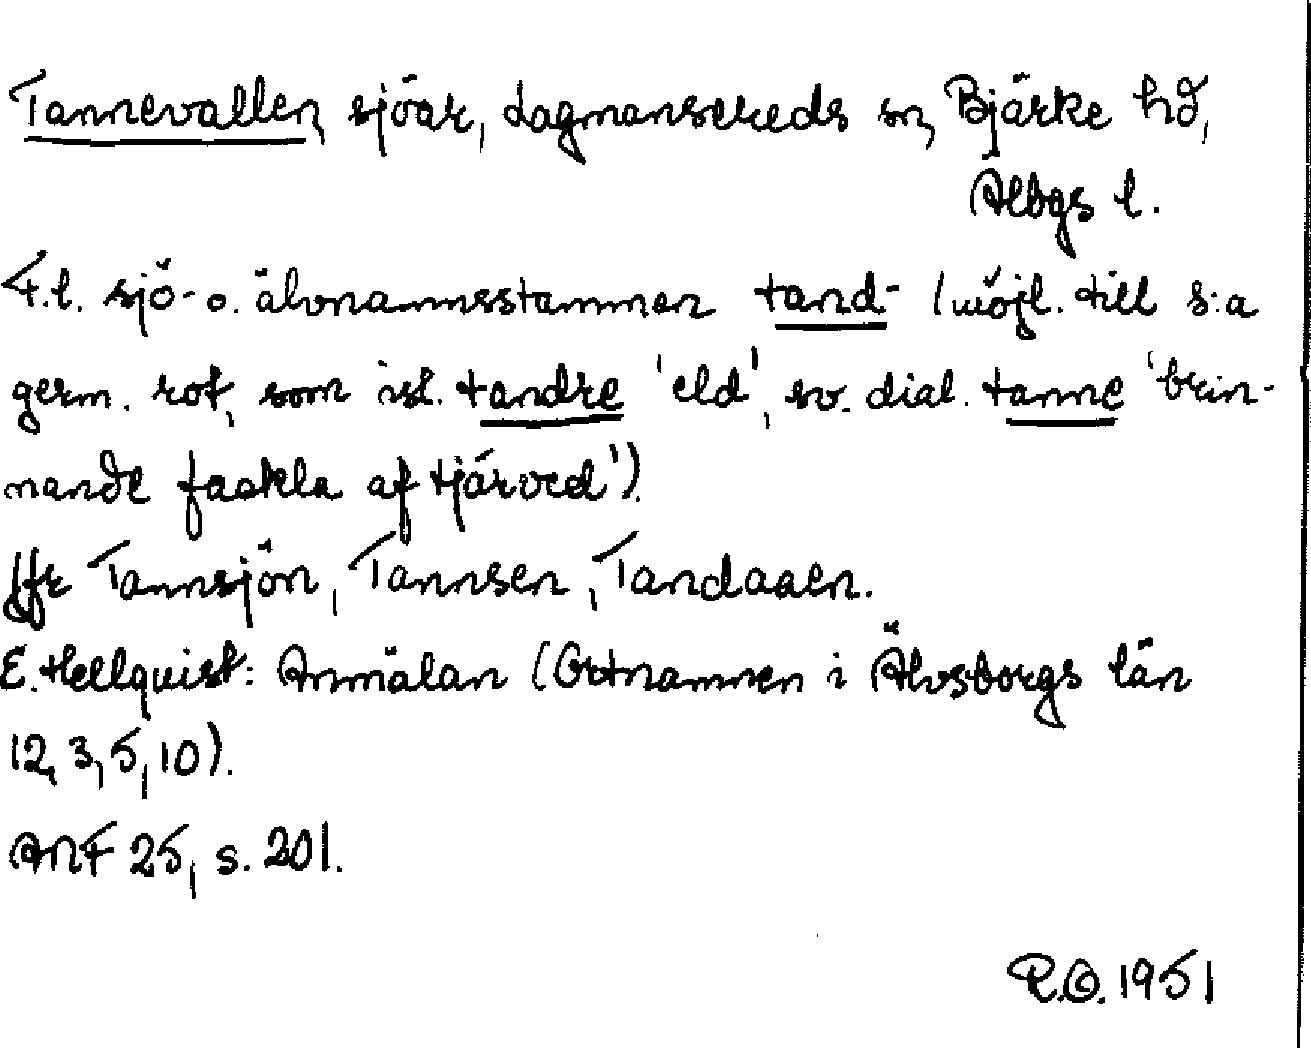 Tannevallen, sjöar, Lagmansereds sn, Bjärke hd,
Älbgs l.
T.l. sjö- o. älvnamnsstammen tand- (möjl. till s:a
germ. rot, som isl. tandre 'eld', sv. dial. tanne 'brin-
nande fackla af tjärved').
Jfr Tannsjön, Tannsen, Tandaaen.
E. Hellquist: Anmälan (Ortnamnen i Älvsborgs län
12, 3, 5, 10).
ANF 25, s. 201.
R.O. 1951